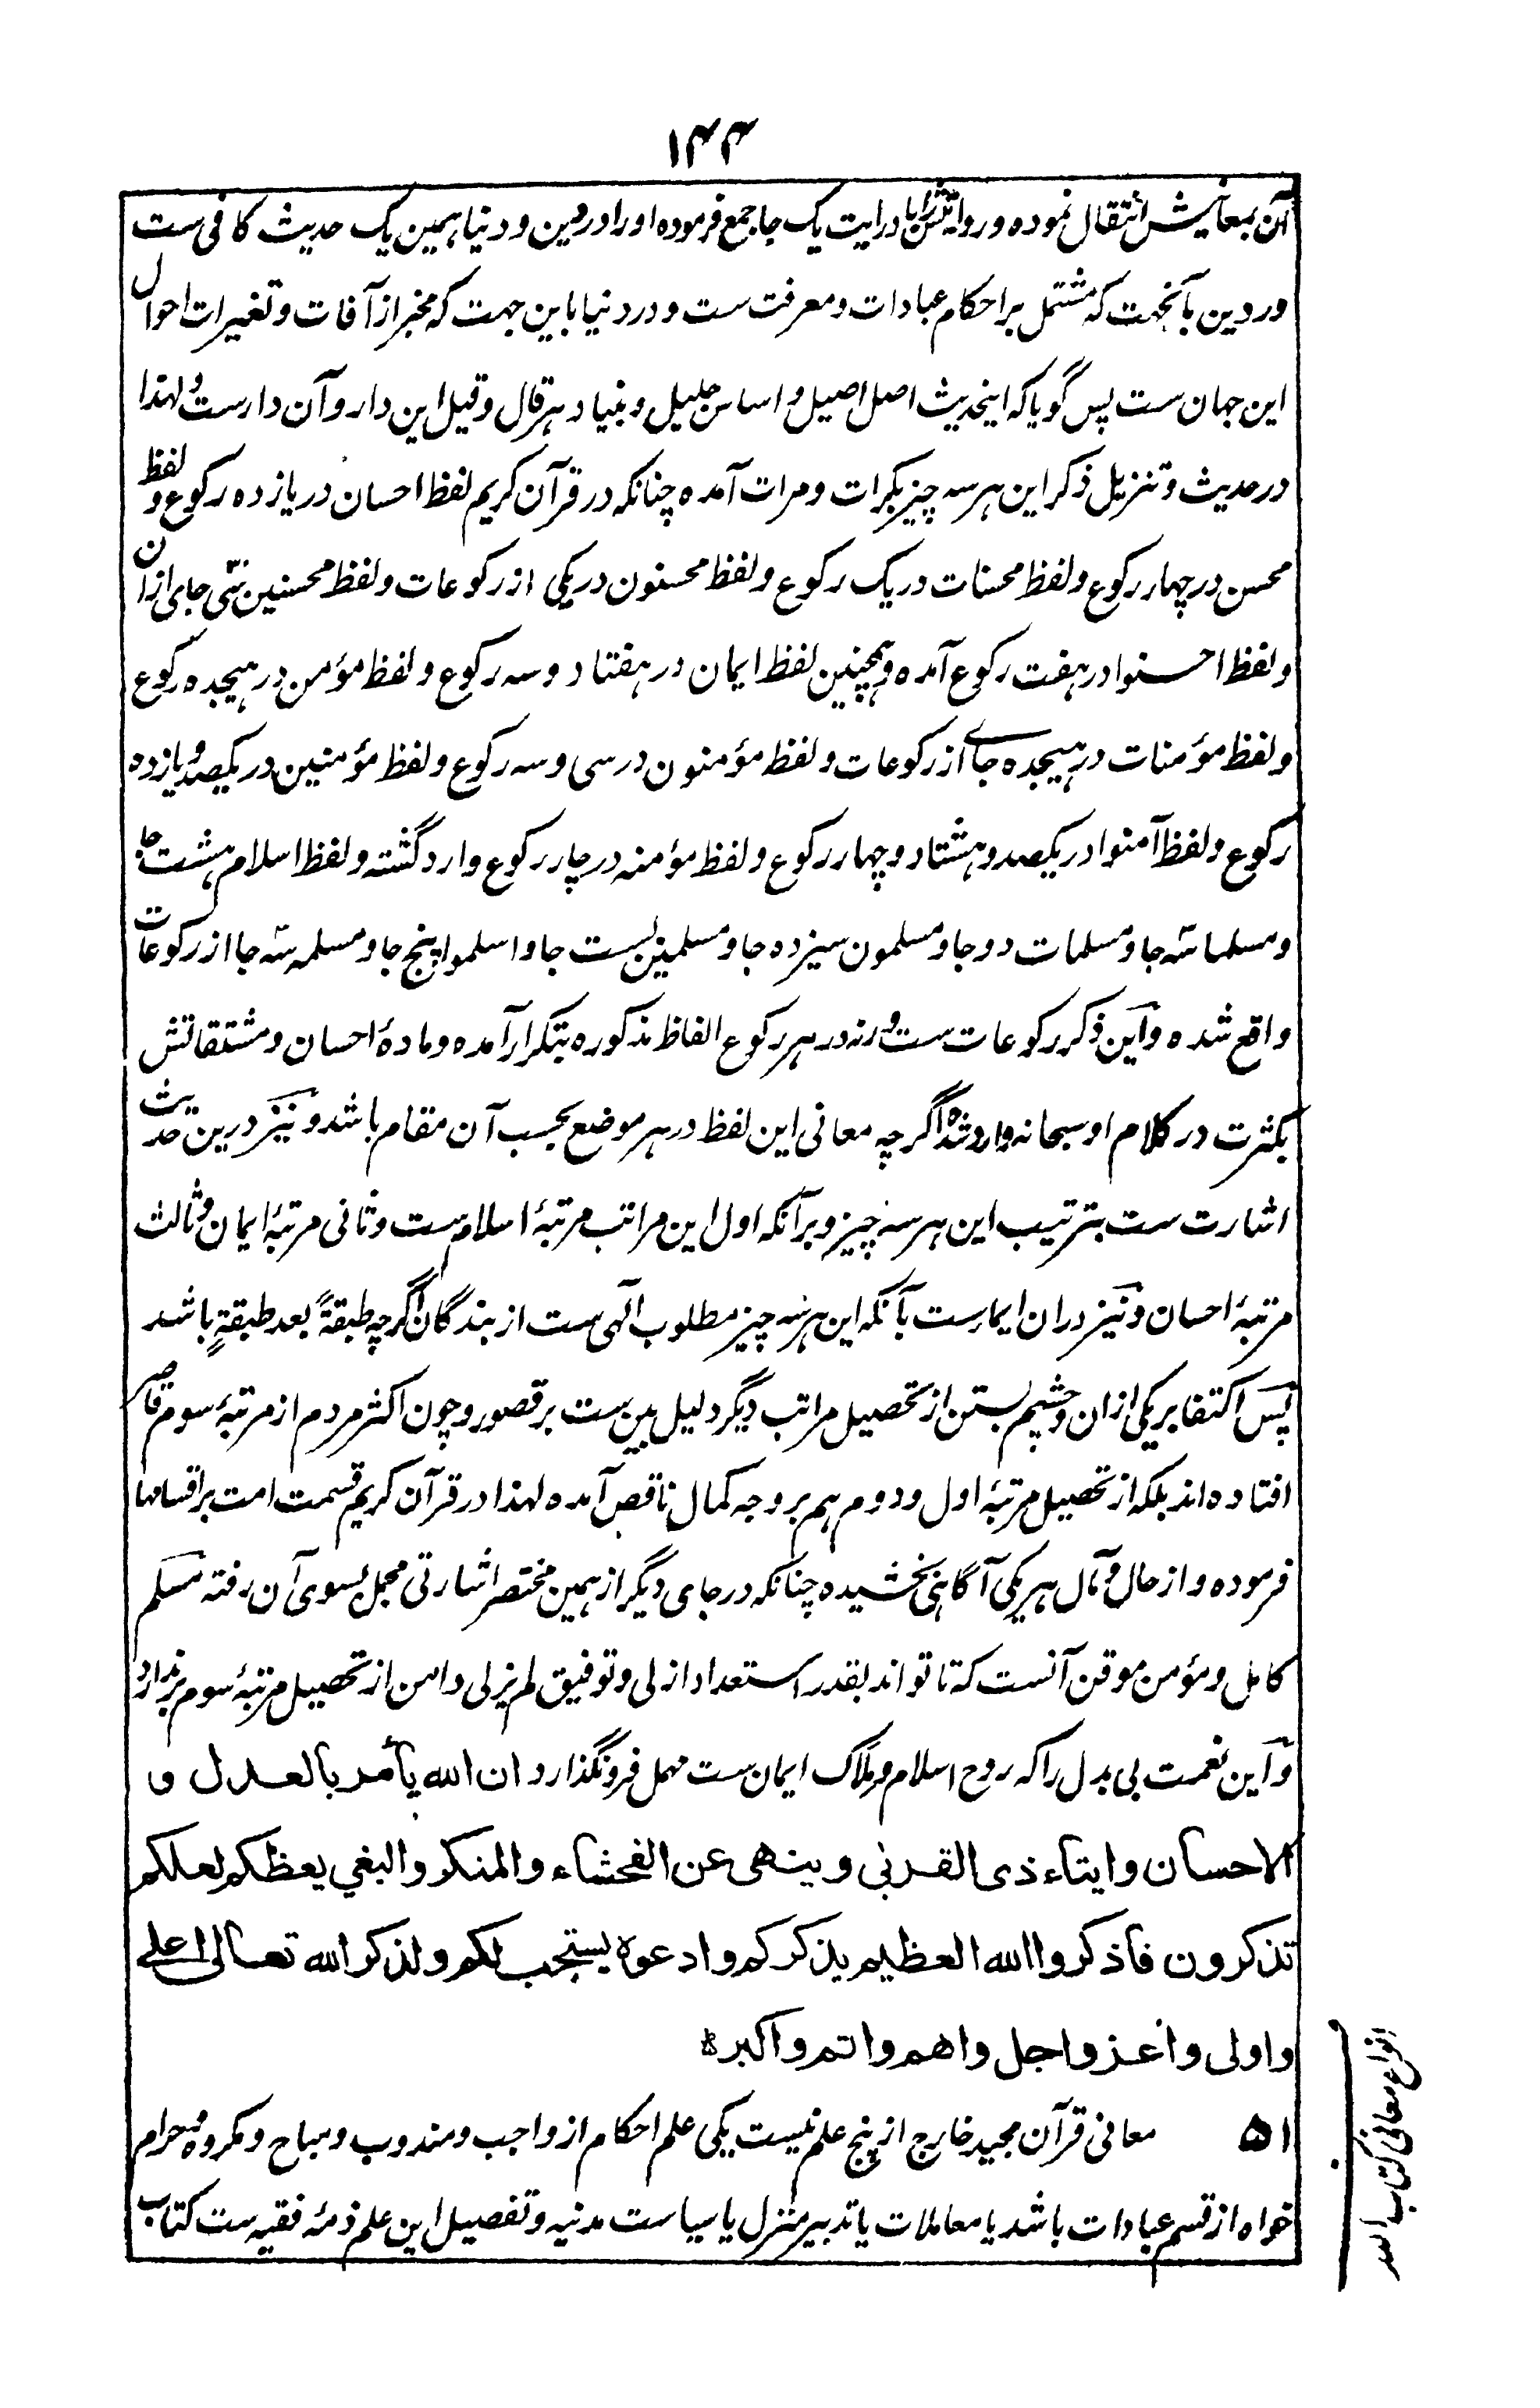 ۱۴۴
آن بمعانیش انتقال نموده و روایتش را با درایت یک جا جمع فرموده او را در دین و دنیا همین یک حدیث کافی ست
در دین بآنجهت که مشتمل بر احکام عبادات و معرفت ست و در دنیا باین جهت که مخبر از آفات و تغیرات احوال
این جهان ست پس گویا که اینحدیث اصل اصیل و اساس جلیل و بنیاد هر قال و قیل این دار و آن دارست و لهذا
در حدیث و تنزیل ذکر این هر سه چیز بکرات و مرات آمده چنانکه در قرآن کریم لفظ احسان در یازده رکوع و لفظ
محسن در چهار رکوع و لفظ محسنات در یک رکوع و لفظ محسنون در یکی از رکوعات و لفظ محسنین سی جای ازان
و لفظ احسنوا در هفت رکوع آمده و همچنین لفظ ایمان در هفتاد و سه رکوع و لفظ مؤمن در هیجده رکوع
و لفظ مؤمنات در هیجده جاے از رکوعات و لفظ مؤمنون در سی و سه رکوع و لفظ مؤمنین در یکصد و یازده
رکوع و لفظ آمنوا در یکصد و هشتاد و چهار رکوع و لفظ مؤمنه در چار رکوع وارد گشته و لفظ اسلام هشت جا
و مسلما سه جا و مسلمات دو جا و مسلمون سیزده جا و مسلمین بست جا و اسلموا پنج جا و مسلمه سه جا از رکوعات
واقع شده و این ذکر رکوعات ست ورنه در هر رکوع الفاظ مذکوره بتکرار آمده و مادۀ احسان و مشتقاتش
بکثرت در کلام او سبحانه وارد شده اگرچه معانی این لفظ در هر موضع بحسب آن مقام باشد و نیز درین حدیث
اشارت ست بترتیب این هر سه چیز و بر آنکه اول این مراتب مرتبۀ اسلام ست و ثانی مرتبۀ ایمان و ثالث
مرتبۀ احسان و نیز دران ایمارست بآنکه این هر سه چیز مطلوب الٓهی ست از بندگان اگرچه طبقةً بعد طبقةٍ باشد
پس اکتفا بر یکی ازان و چشم بستن از تحصیل مراتب دیگر دلیل بین ست بر قصور و چون اکثر مردم از مرتبۀ سوم قاصر
افتاده اند بلکه از تحصیل مرتبۀ اول و دوم هم بر وجه کمال ناقص آمده لهذا در قرآن کریم قسمت امت بر اقسامها
فرموده و از حال و مآل هر یکی آگاهی بخشیده چنانکه در جای دیگر از همین مختصر اشارتی مجمل بسوی آن رفته مسلم
کامل و مؤمن موقن آنست که تا تواند بقدر استعداد ازلی و توفیق لم یزلی دامن از تحصیل مرتبۀ سوم بر ندارد
و این نعمت بی بدل را که روح اسلام و ملاک ایمان ست مهمل فرو نگذارد ان الله یأمر بالعدل و
الاحسان وایتاء ذی القربی وینهی عن الفحشاء والمنکر والبغی یعظکم لعلکم
تذکرون فاذکروا الله العظیم یذکرکم وادعوه یستجب لکم ولذکر الله تعالی اعلے
واولی واعز واجل واهم واتم واکبر
۵۱ معانی قرآن مجید خارج از پنج علم نیست یکی علم احکام از واجب و مندوب و مباح و مکروه و حرام
خواه از قسم عبادات باشد یا معاملات یا تدبیر منزل یا سیاست مدنیه و تفصیل این علم ذمۀ فقیه ست کتاب
انواع معانی کتاب الله